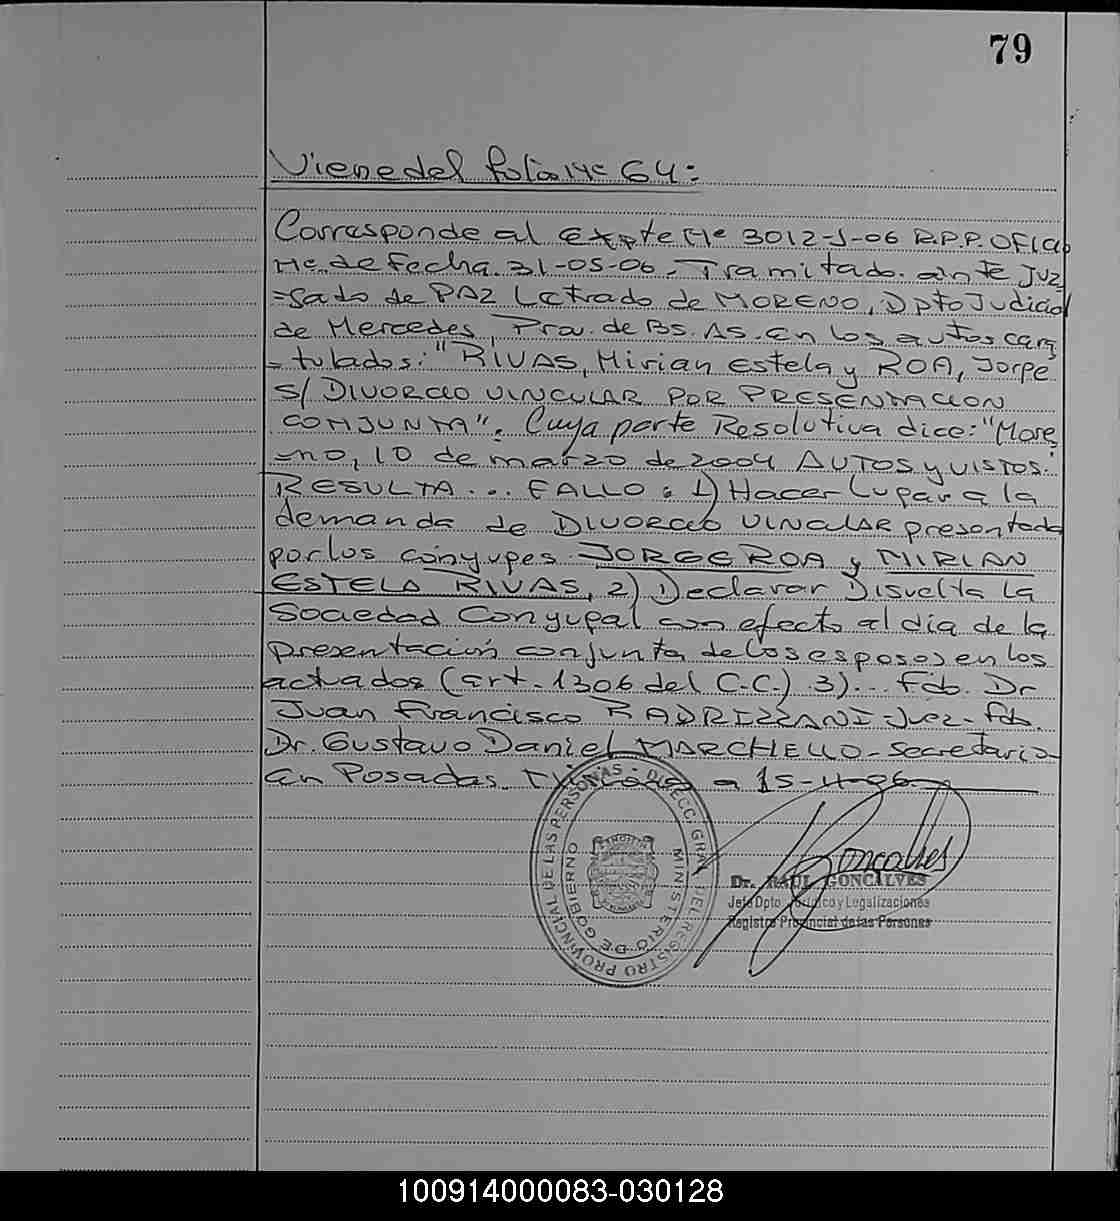 79
Viene del folio Nº 64:
Corresponde al Expte Nº 3012-J-06 R.P.P. OFICIO
Nº de fecha 31-05-06. Tramitado ante Juz
=gado de PAZ Letrado de MORENO, Dpto Judicial
de Mercedes, Prov. de Bs. As. en los autos cara
=tulados: "RIVAS, Mirian Estela y ROA, Jorge
S/ DIVORCIO VINCULAR POR PRESENTACION
CONJUNTA". Cuya parte Resolutiva dice: "More
=no, 10 de marzo de 2004 AUTOS y VISTOS:
RESULTA... FALLO: 1) Hacer Lugar a la
demanda de DIVORCIO VINCULAR presentada
por los cónyuges JORGE ROA y MIRIAN
ESTELA RIVAS, 2) Declarar Disuelta la
Sociedad Conyugal con efecto al día de la
presentación conjunta de los esposos en los
actuados (art. 1306 del C.C.) 3)... Fdo. Dr
Juan Francisco RADRIZZANI-Juez-fdo.
Dr. Gustavo Daniel MARCHELLO-Secretario
en Posadas, a 15-
DIRECC. GRAL. DEL REGISTRO PROVINCIAL DE LAS PERSONAS
MINISTERIO DE GOBIERNO
Goncalves
Dr. RAUL GONCALVES
Jefe Dpto Jurídico y Legalizaciones
Registro Provincial de las Personas
100914000083-030128